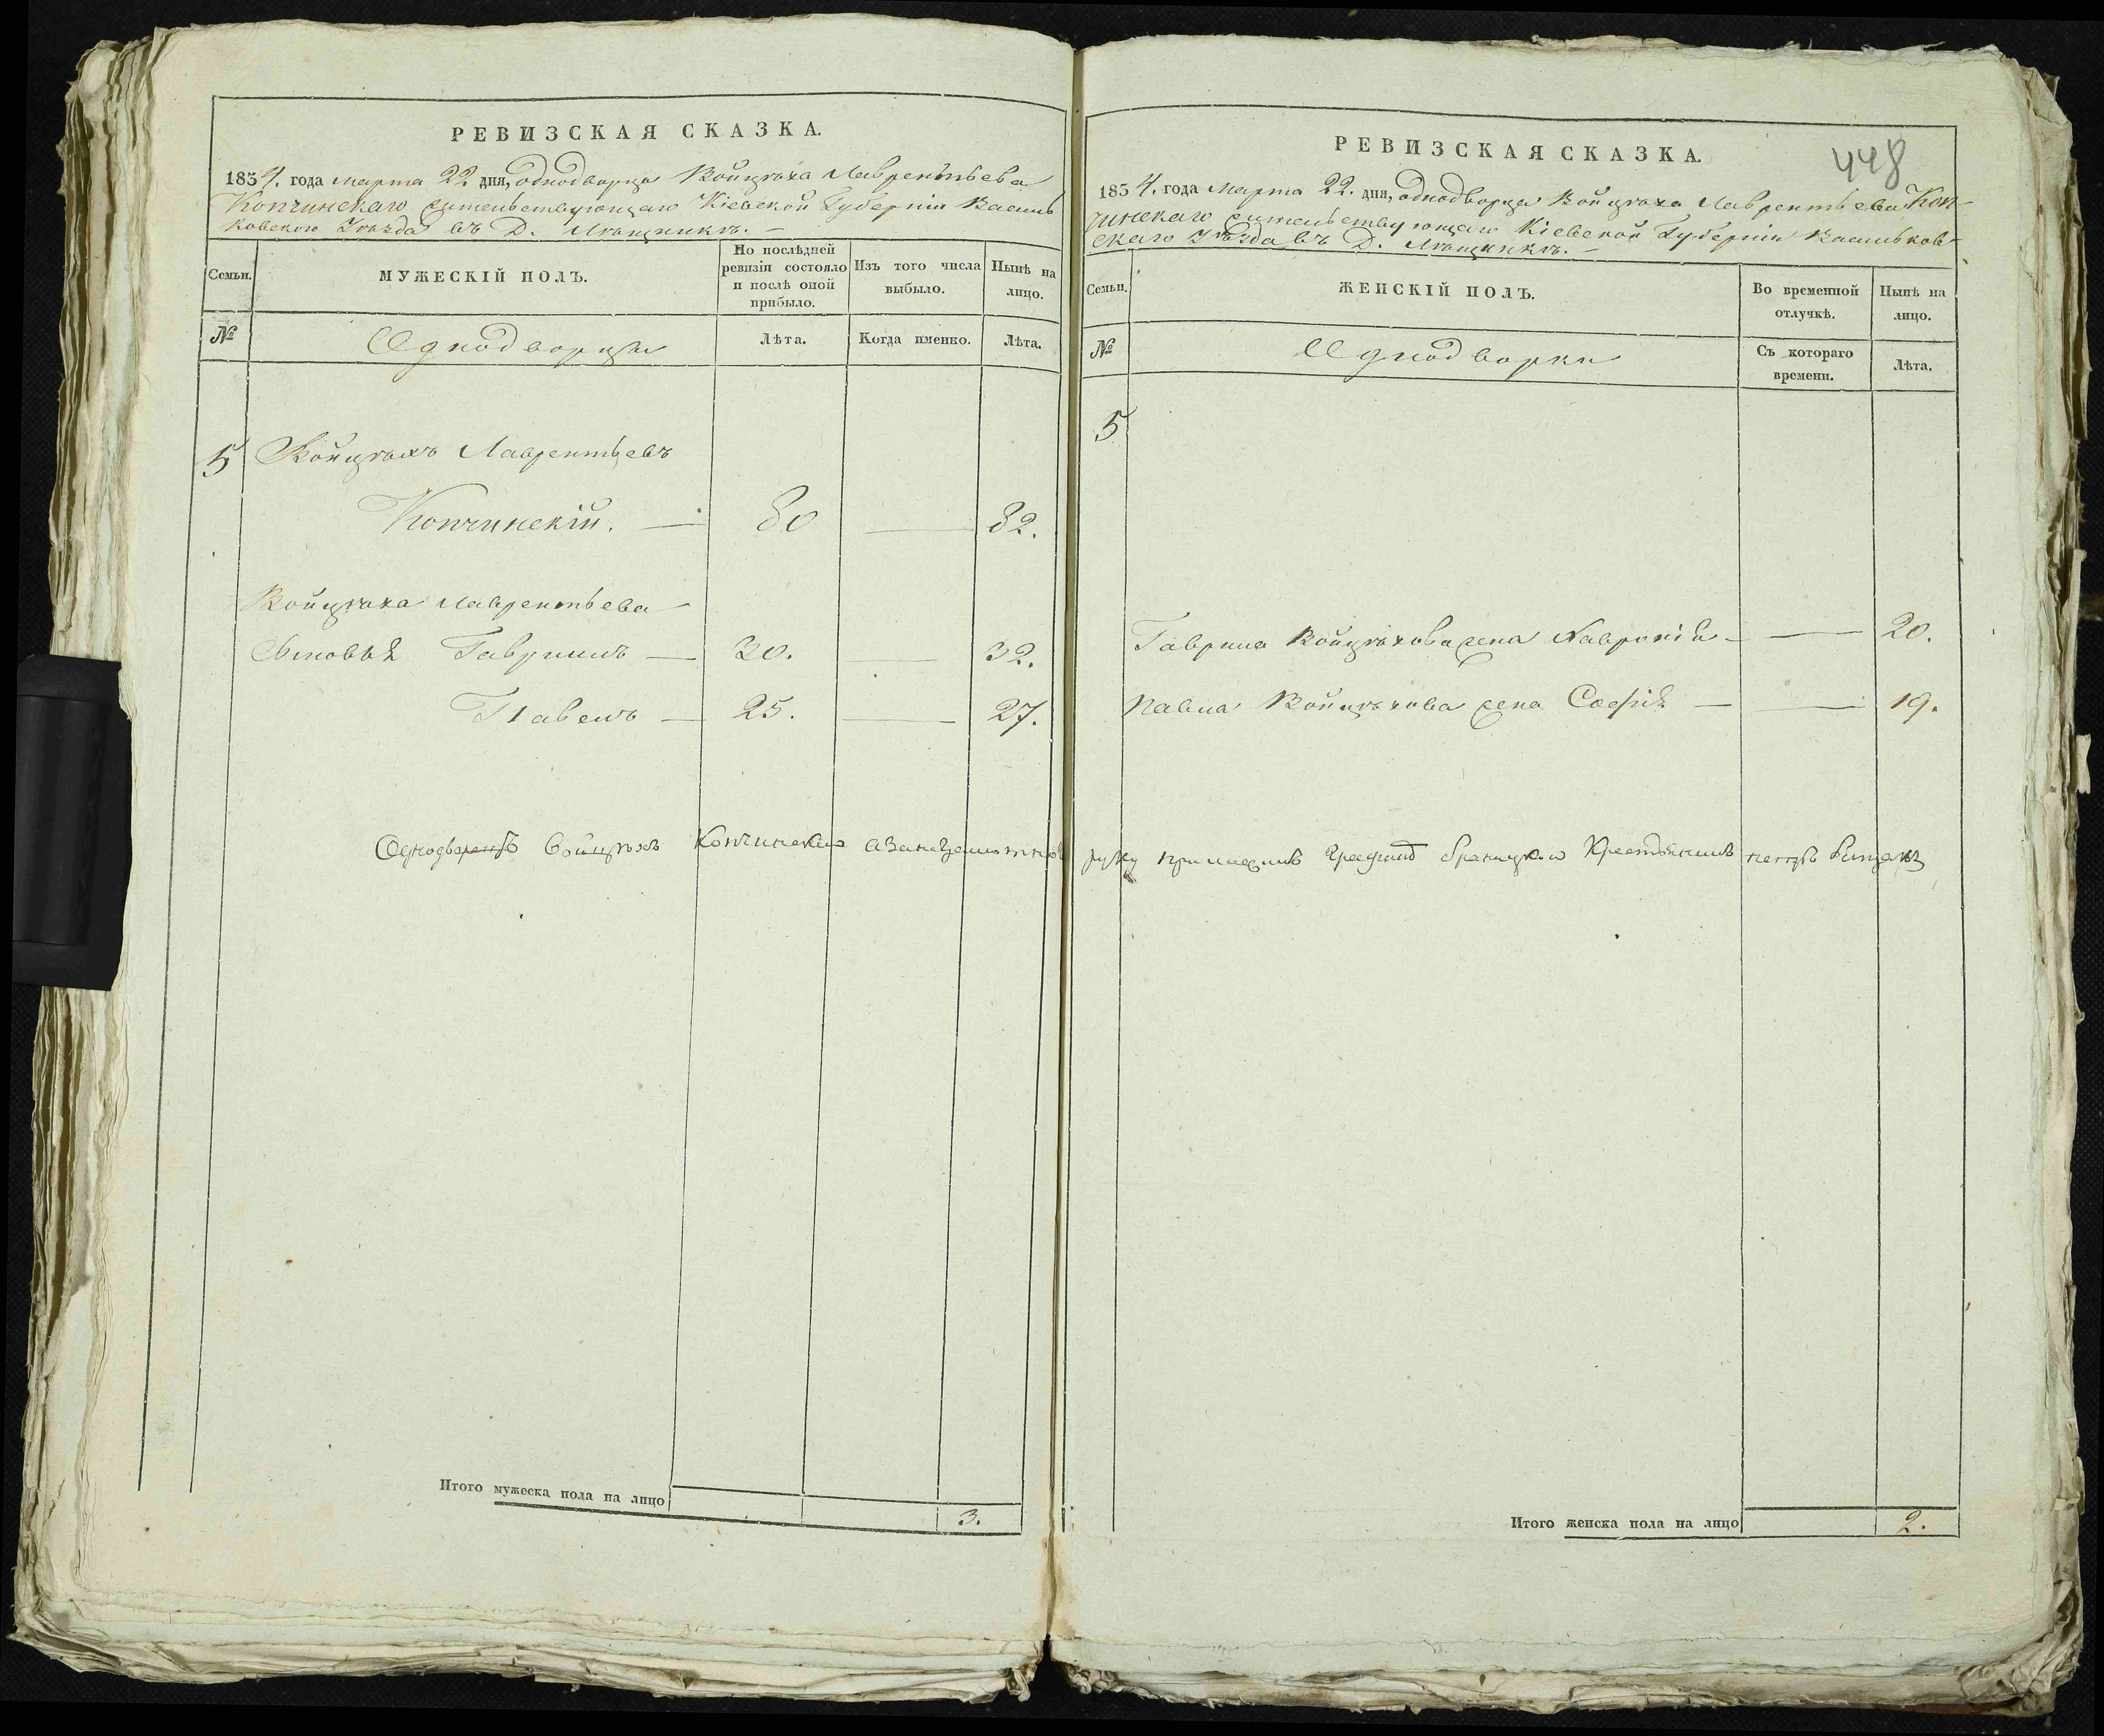 РЕВИЗСКАЯ СКАЗКА.
1834. года марта 22 дня, однодворца Войцѣха Лаврентьева
Копчинскаго жительствующаго Кіевской Губерніи Василь
ковскаго Уѣзда въ Д.
Семьи.
МУЖЕСКІЙ ПОЛЪ.
По послѣдней ревизіи состояло и послѣ оной прибыло.
Изъ того числа выбыло.
Нынѣ на лицо.
№
Однодворцы
Лѣта.
Когда именно.
Лѣта.
5 Войцѣхъ Лаврентьевъ
Копчинскій. — 80 — 82.
Войцѣха Лаврентьева
Сыновья Гавриилъ — 30. — 32.
Павелъ — 25. — 27.
Однодворецъ Войцѣхъ Копчинскій а занего
Итого мужеска пола на лицо
3.
448
РЕВИЗСКАЯ СКАЗКА.
1834. года Марта 22. дня, однодворца Войцѣха Лаврентьева Коп-
чинскаго жительствующаго Кіевской Губерніи Васильков-
скаго Уѣзда въ Д.
Семьи.
ЖЕНСКІЙ ПОЛЪ.
Во временной отлучкѣ.
Нынѣ на лицо.
№
Однодворки
Съ котораго времени.
Лѣта.
5
Гаврила Войцѣхова жена — — 20.
Павла Войцѣхова жена Софія — — 19.
руку приложилъ
Итого женска пола на лицо
2.